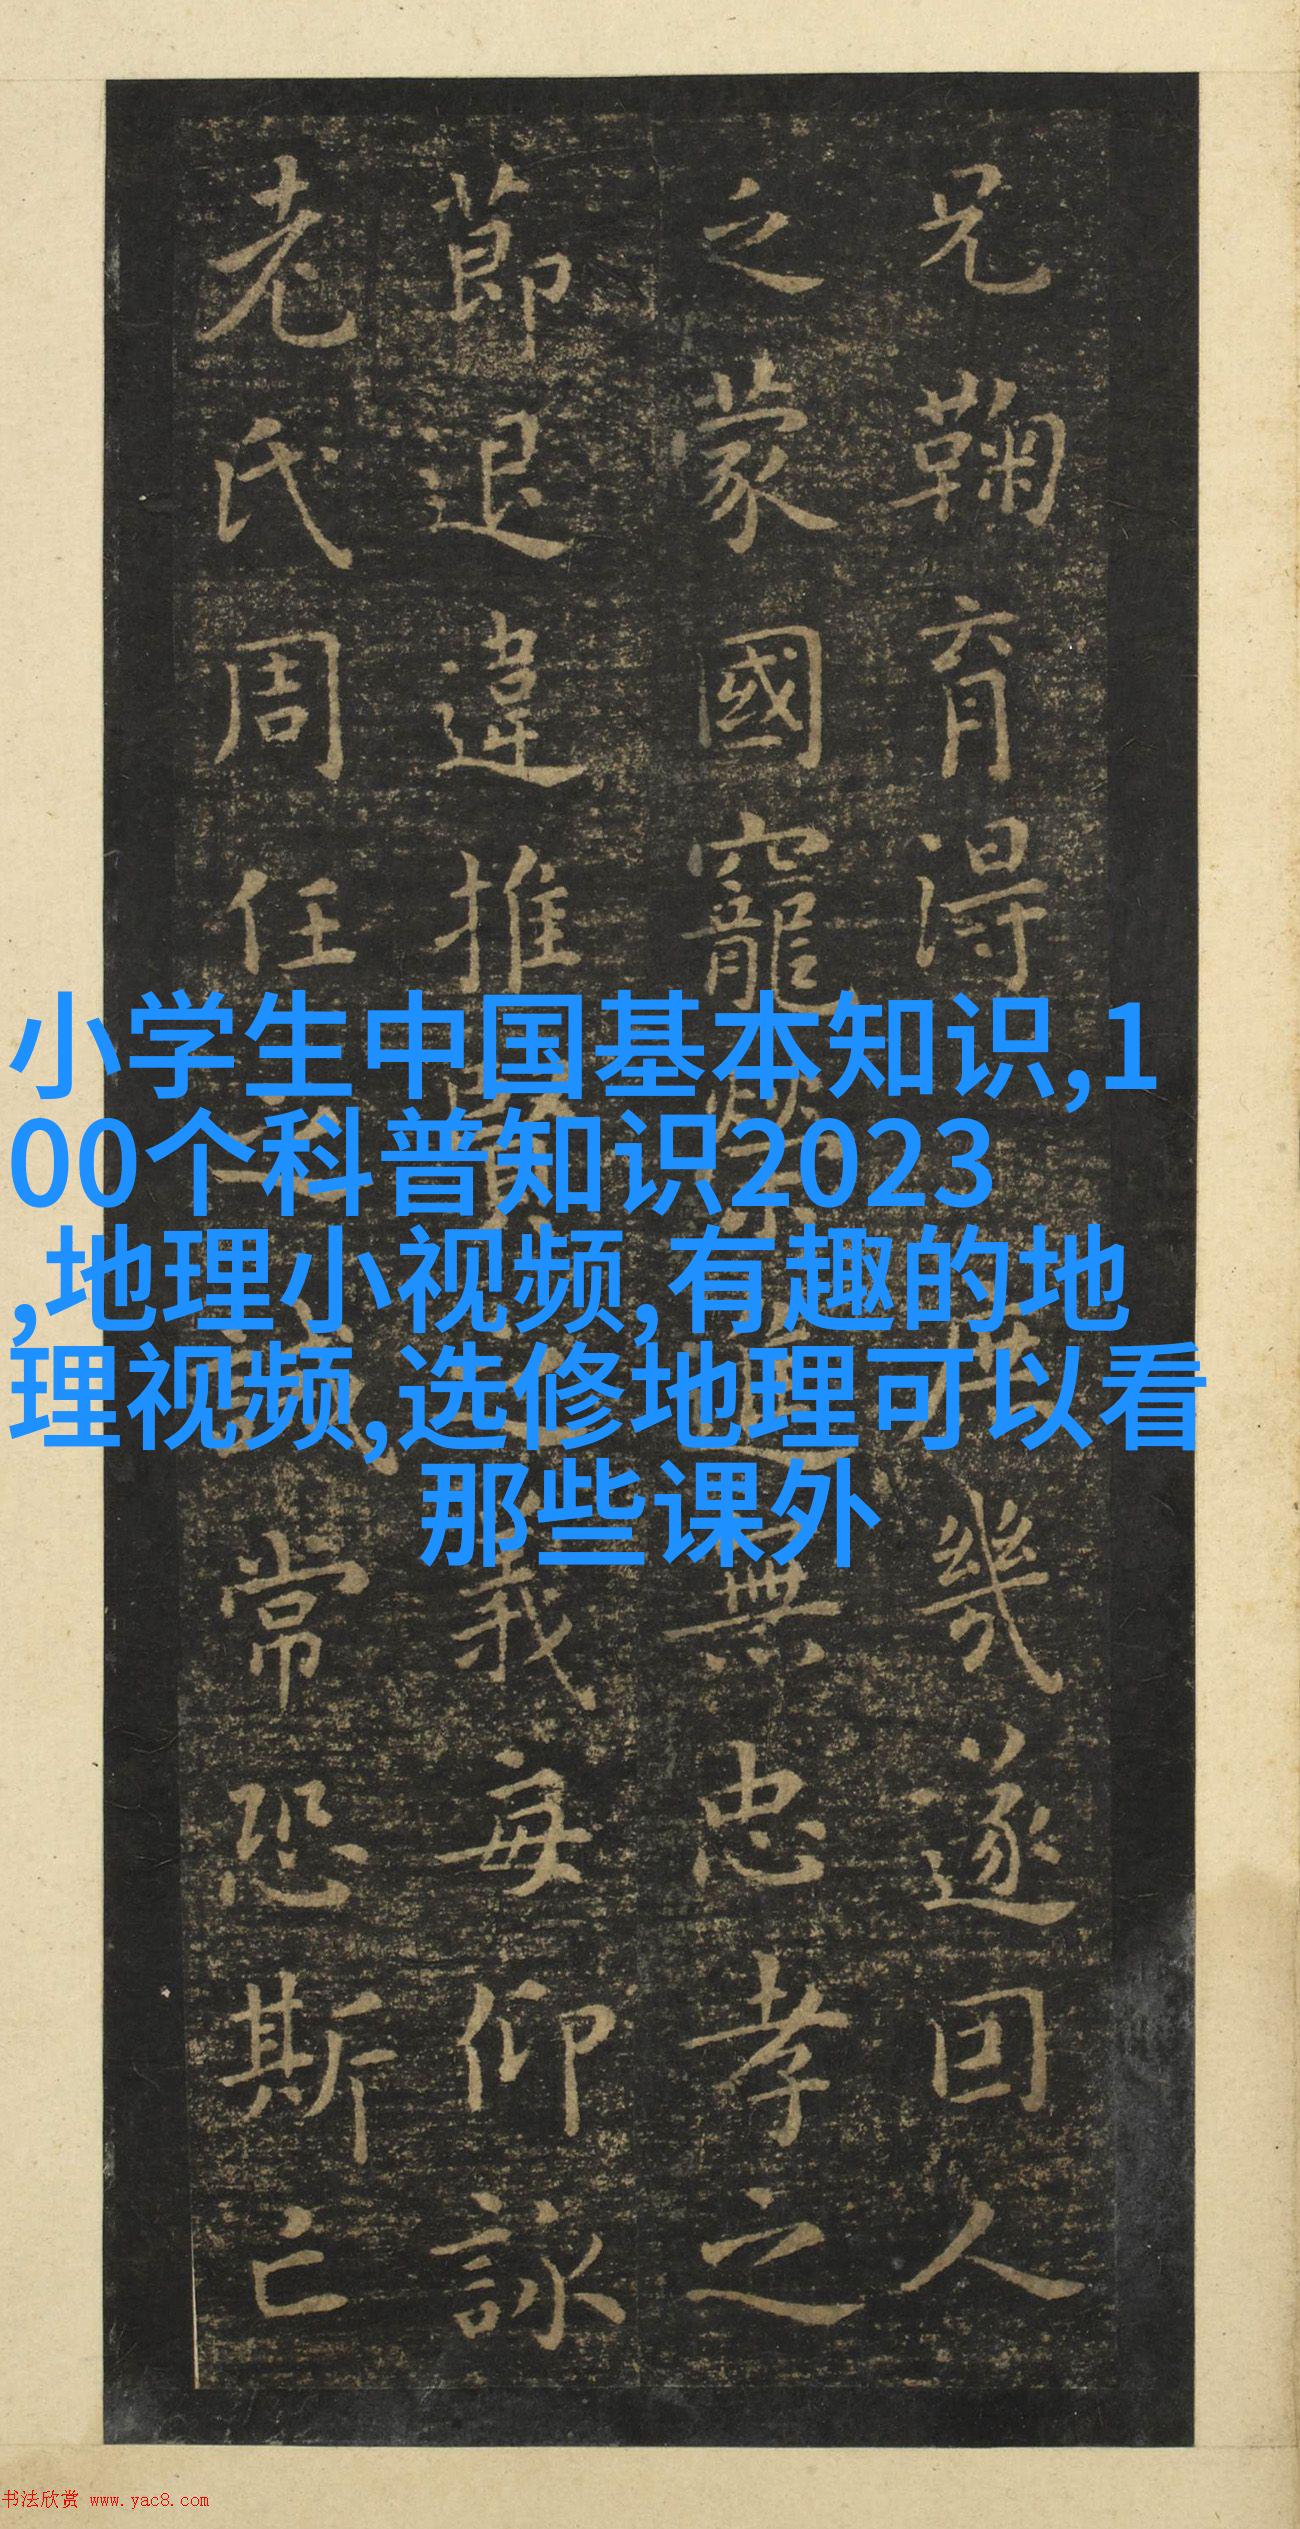 兄鞠育得庶幾遂因人
之蒙國寵榮進無忠孝之
節退違推賢之義每仰詠
老氏周任之誡常恐斯亡
小学生中国基本知识,1
00个科普知识2023
,地理小视频,有趣的地
理视频,选修地理可以看
那些课外
书法欣赏 www.yac8.com